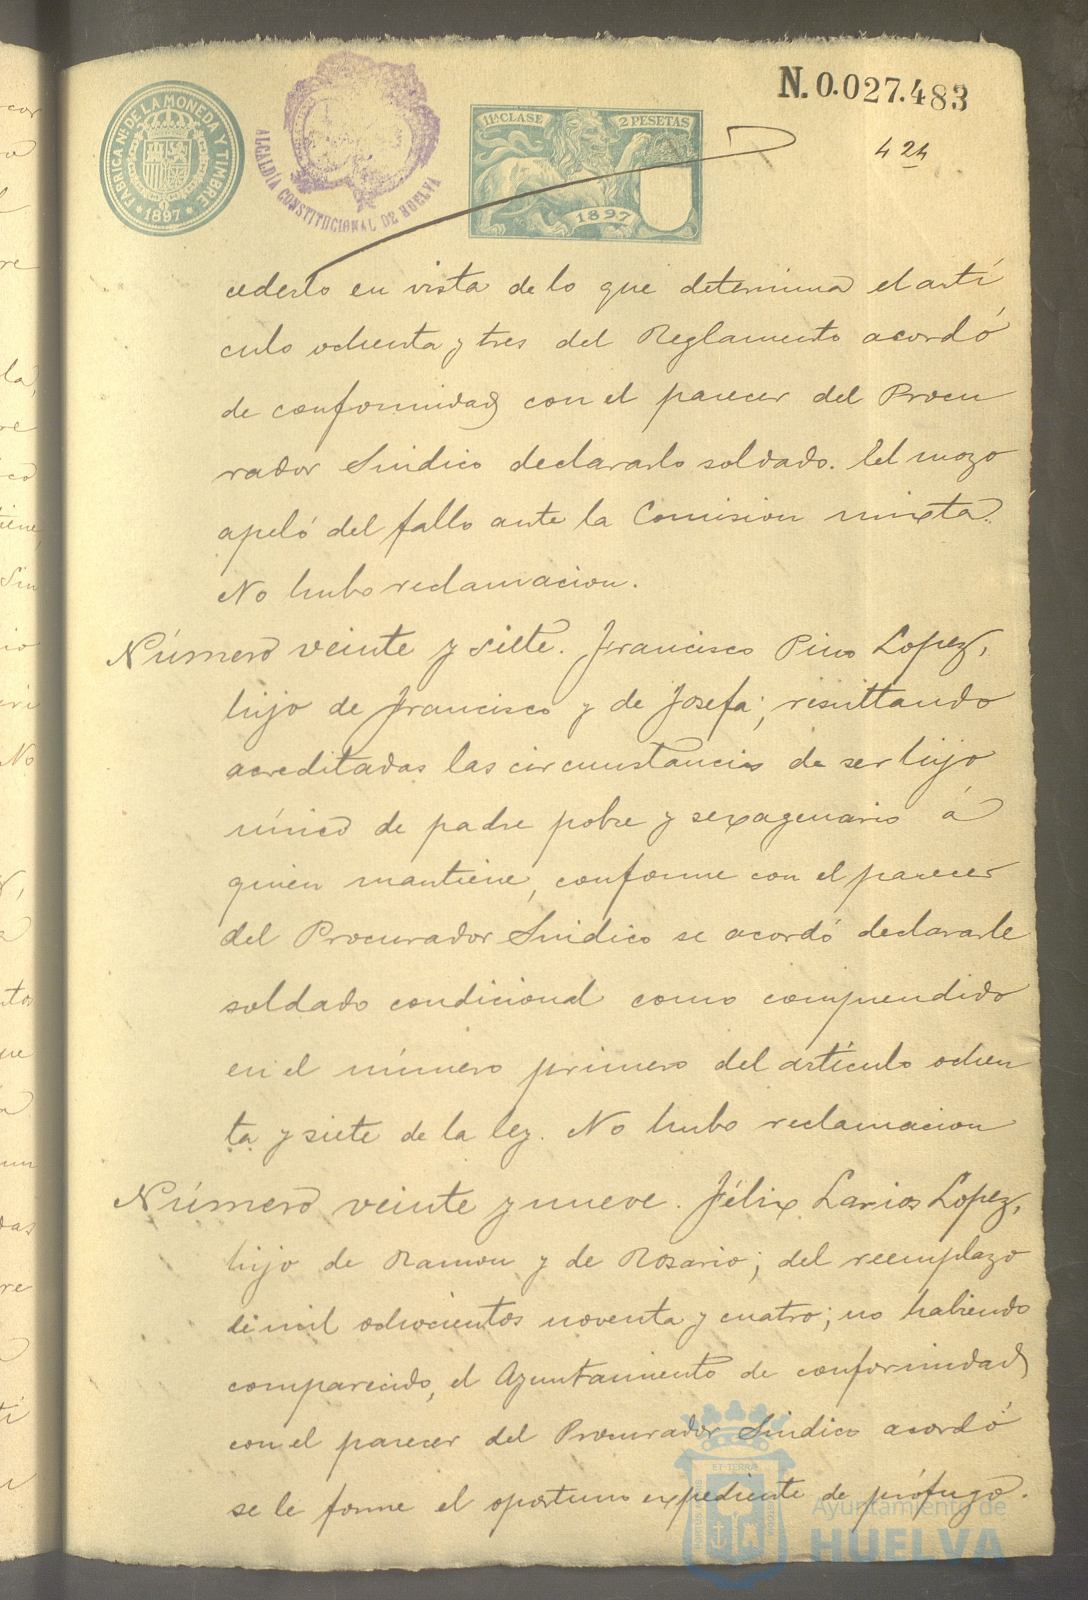 N. 0.027.483
FABRICA Nl. DE LA MONEDA Y TIMBRE
* 1897 *
ALCALDÍA CONSTITUCIONAL DE HUELVA
11ª CLASE 2 PESETAS
1897
424
cederlo en vista de lo que determina el artí
culo ochenta y tres del Reglamento acordó
de conformidad con el parecer del Procu
rador Sindico declararlo soldado. El mozo
apeló del fallo ante la Comision mixta.
No hubo reclamacion.
Número veinte y siete. Francisco Pino Lopez,
hijo de Francisco y de Josefa; resultando
acreditadas las circunstancias de ser hijo
único de padre pobre y sexagenario á
quien mantiene, conforme con el parecer
del Procurador Sindico se acordó declararle
soldado condicional como comprendido
en el número primero del artículo ochen
ta y siete de la ley. No hubo reclamacion
Número veinte y nueve. Félix Larios Lopez,
hijo de Ramon y de Rosario; del reemplazo
de mil ochocientos noventa y cuatro; no habiendo
comparecido, el Ayuntamiento de conformidad
con el parecer del Procurador Sindico acordó
se le forme el oportuno expediente de prófugo.
Ayuntamiento de
HUELVA